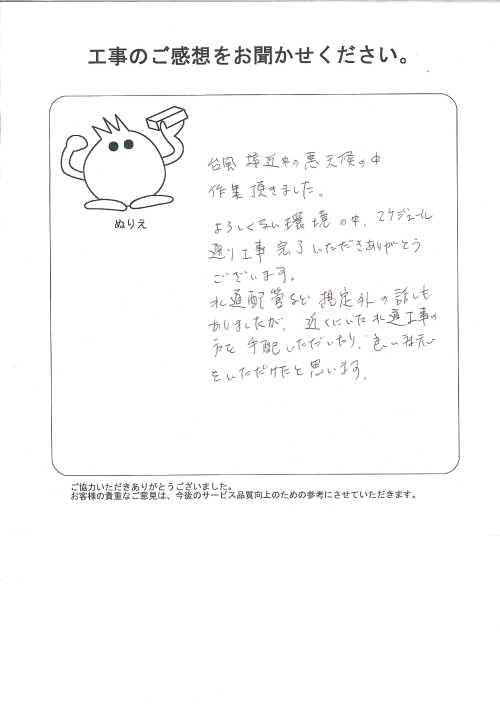 工事のご感想をお聞かせください。
ぬりえ
台風接近中の悪天候の中
作業頂きました。
よろしくない環境の中、スケジュール
通り工事完了いただきありがとう
ございます。
水道配管など想定外の話しも
ありましたが、近くにいた水道工事の
方を手配いただいたり、良い対応
をいただけたと思います。
ご協力いただきありがとうございました。
お客様の貴重なご意見は、今後のサービス品質向上のための参考にさせていただきます。